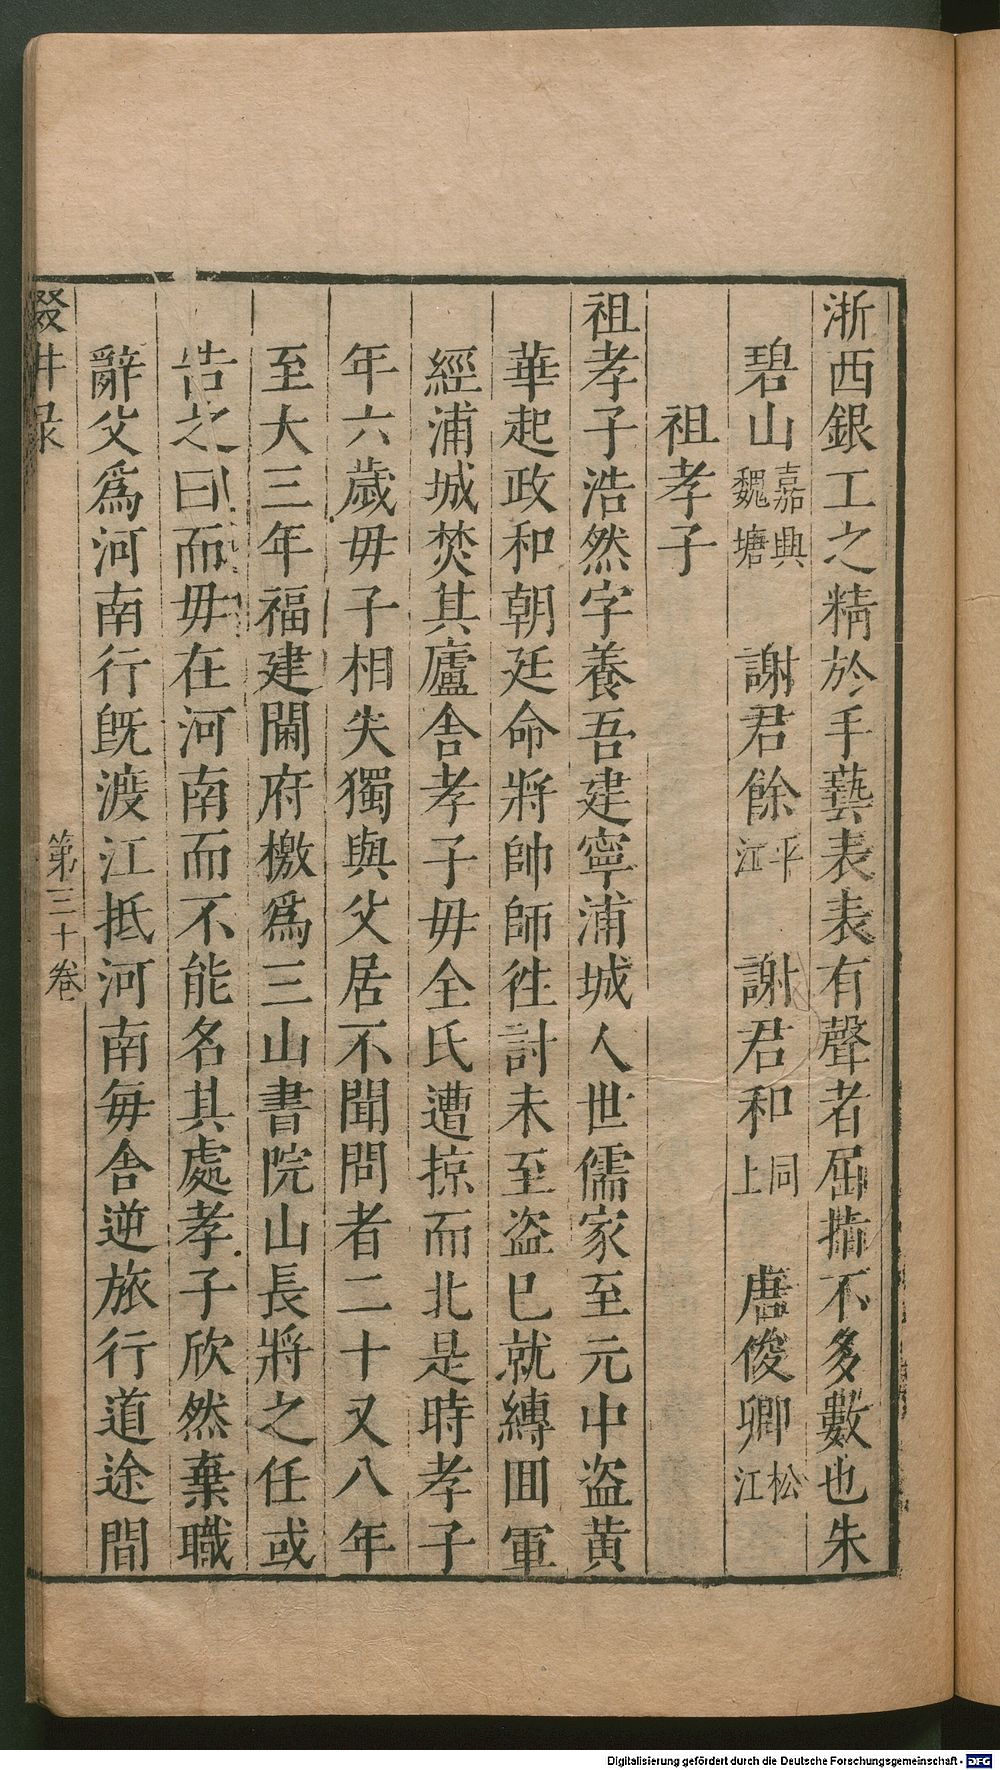 浙西銀工之精於手藝表表有聲者屈指不多數也朱
碧山嘉興魏塘 謝君餘平江 謝君和同上 唐俊卿松江
祖孝子
祖孝子浩然字養吾建寧浦城人世儒家至元中盗黃
華起政和朝廷命將帥師徃討未至盗巳就縛囬軍
經浦城焚其廬舎孝子毋全氏遭掠而北是時孝子
年六歲毋子相失獨與父居不聞問者二十又八年
至大三年福建閫府檄爲三山書院山長將之任或
告之曰而毋在河南而不能名其處孝子欣然棄職
辭父爲河南行旣渡江抵河南每舎逆旅行道途間
輟畊录 第三十卷
Digitalisierung gefördert durch die Deutsche Forschungsgemeinschaft - DFG